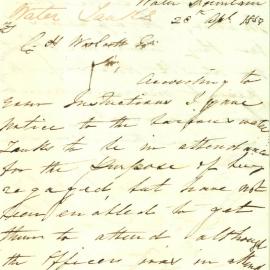 Water Tanks
Water Mountain
28th Sept 1858
C H Esqr
Sir,
According to
your Instructions I gave
notice to the various water
Tanks to be in attendance
for the Purpose of being
engaged, but have not
been enabled to get
them to attend, although
the Officers was in